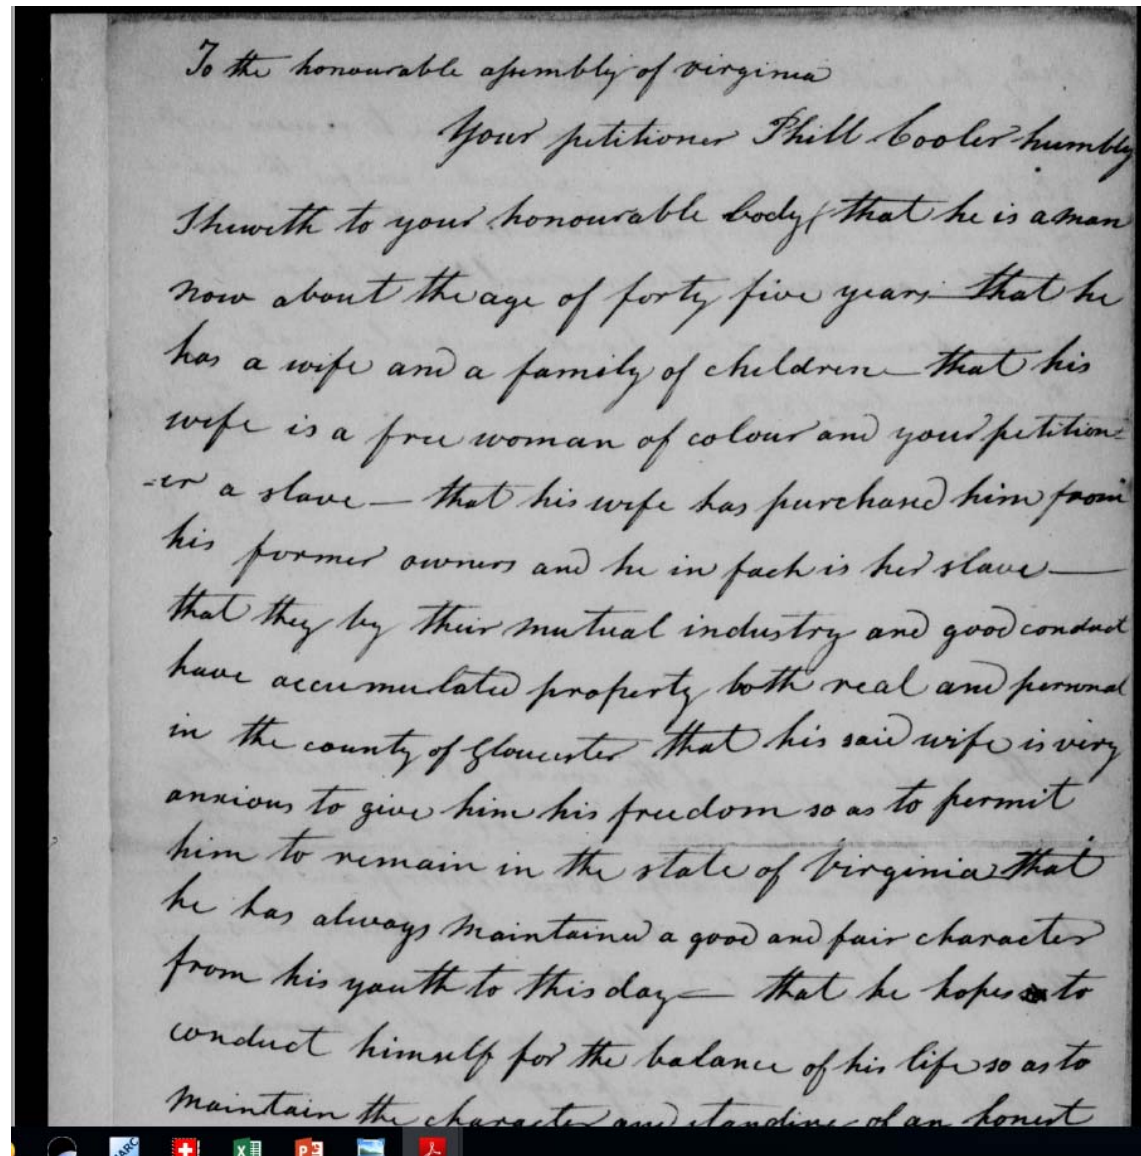 To the honourable assembly of virginia
Your petitioner Phill Cooler humbly
Sheweth to your honourable body, that he is a man
now about the age of forty five years—that he
has a wife and a family of children—that his
wife is a free woman of colour and your petition=
-er a slave—that his wife has purchased him from
his former owners and he in fact is her slave—
that they by their mutual industry and good conduct
have accumulated property both real and personal
in the county of Gloucester that his said wife is very
anxious to give him his freedom so as to permit
him to remain in the state of Virginia that
he has always maintained a good and fair character
from his youth to this day—that he hopes to
conduct himself for the balance of his life so as to
maintain the character and standing of an honest
MARC